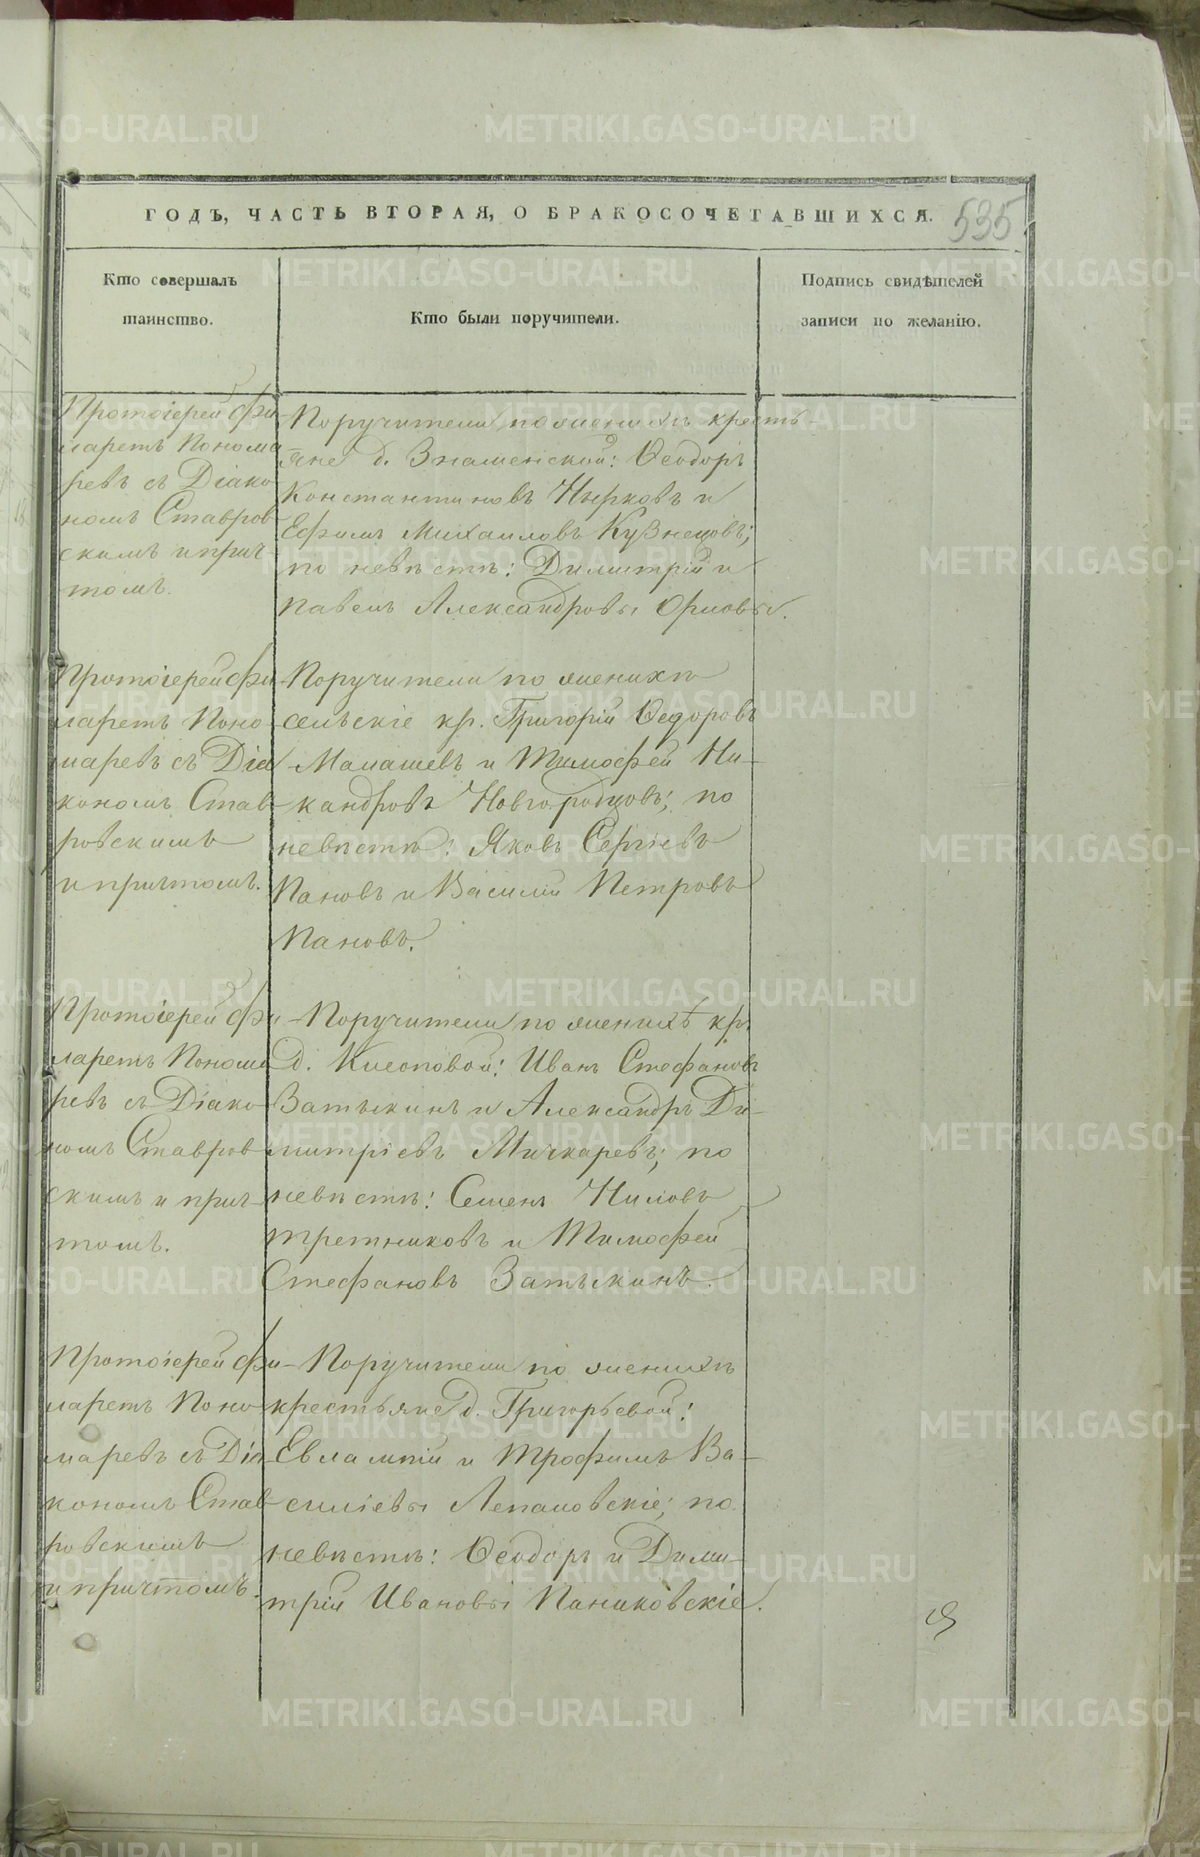 ГОДЪ, ЧАСТЬ ВТОРАЯ, О БРАКОСОЧЕТАВШИХСЯ.
535
Кто совершалъ
таинство.
Кто были поручители.
Подпись свидѣтелей
записи по желанію.
Протоіерей Фи
ларетъ Понома
ревъ съ Діако
номъ Ставров
скимъ и прич
томъ.
Поручители по женихѣ кресть
яне д. Знаменской: Ѳеодоръ
Константиновъ Чирковъ и
Ефимъ Михаиловъ Кузнецовъ;
по невѣстѣ: Димитрій и
Павелъ Александровы Орловы.
Протоіерей Фи
ларетъ Поно
маревъ съ Діа
кономъ Став
ровскимъ
и причтомъ.
Поручители по женихѣ
сельскіе кр. Григорій Ѳедоровъ
Малашевъ и Тимофей Ни-
кандровъ Новгородцовъ; по
невѣстѣ: Яковъ Сергіевъ
Пановъ и Василій Петровъ
Пановъ.
Протоіерей Фи
ларетъ Понома
ревъ съ Діако
номъ Ставров
скимъ и прич
томъ.
Поручители по женихѣ кр.
д. Иванъ Стефановъ
Затыкинъ и Александръ Ди-
митріевъ Мичкаревъ; по
невѣстѣ: Семенъ Ниловъ
Третниковъ и Тимофей
Стефановъ Затыкинъ.
Протоіерей Фи
ларетъ Поно
маревъ съ Діа
кономъ Став
ровскимъ
и причтомъ.
Поручители по женихѣ
крестьяне д. Григорьевой:
Евлампій и Трофимъ Ва-
силіевы Лепаловскіе; по
невѣстѣ: Ѳеодоръ и Дими-
трій Ивановы Паниковскіе.
METRIKI.GASO-URAL.RU